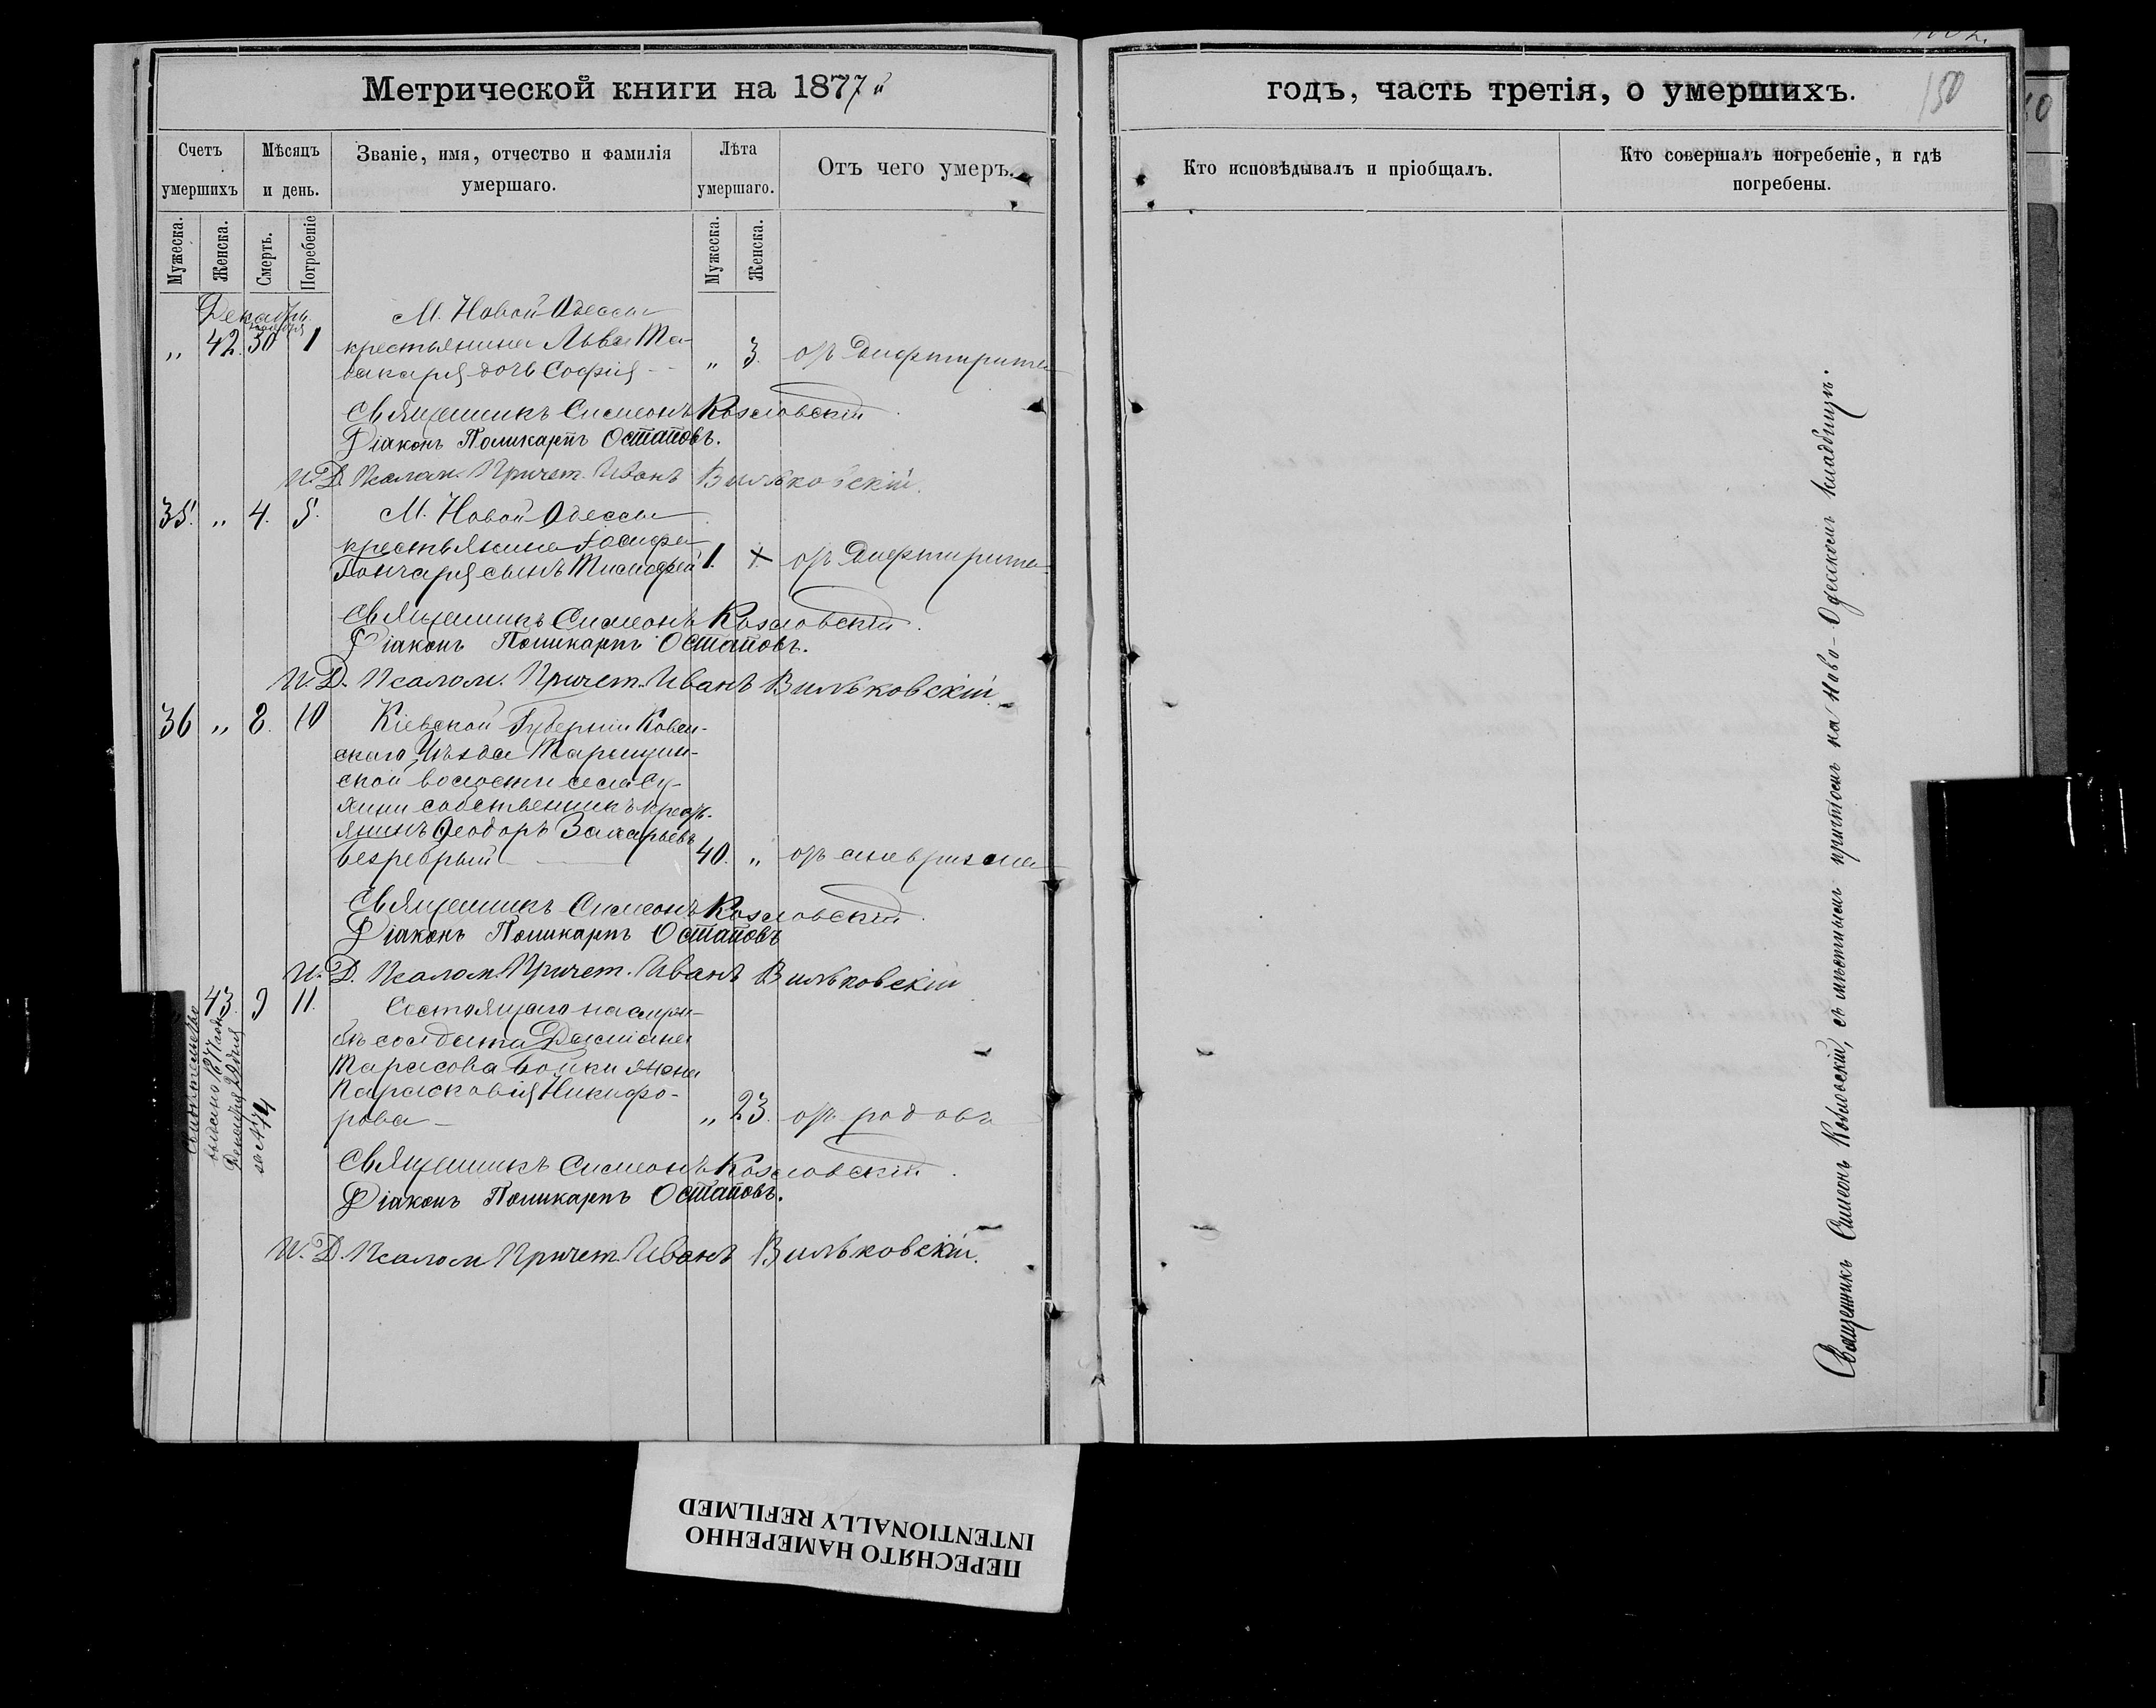 Метрической книги на 1877й
Счетъ умершихъ
Мѣсяцъ и день.
Званіе, имя, отчество и фамилія умершаго.
Лѣта умершаго.
Отъ чего умеръ.
Мужеска.
Женска.
Смерть.
Погребеніе
Мужеска.
Женска.
Декабрь.
ноября
М. Новой Одессы
„ 42. 30 1 крестьянина Льва Та-
бакаря дочь Софія „ 3. отъ дифтирита
Священникъ Симеонъ Козловскій
Діаконъ Поликарпъ Остаповъ.
И. Д. Псалом. Причет. Иванъ Вильковскій.
35. „ 4. 5. М. Новой Одессы
крестьянина Іосифа
Гончаря сынъ Тимофей 1. + отъ дифтирита
Священникъ Симеонъ Козловскій.
Діаконъ Поликарпъ Остаповъ.
И. Д. Псалом. Причет. Иванъ Вильковскій.
36 „ 8. 10 Кіевской Губерніи
скаго Уѣзда
ской волости села
собственникъ крест-
янинъ Ѳеодоръ Захарьевъ
Безребрый 40. „ отъ аневризма
Священникъ Симеонъ Козловскій.
Діаконъ Поликарпъ Остаповъ
И. Д. Псалом. Причет. Иванъ Вильковскій
43. 9 11. Состоящаго на служ-
бѣ солдата Даміана
Тарасова Бойки жена
Парасковія Никифо-
рова „ 23. отъ родовъ
Свидѣтельство
выдано 1877 года
Декабря
за № 74
Священникъ Симеонъ Козловскій.
Діаконъ Поликарпъ Остаповъ.
И. Д. Псалом Причет. Иванъ Вильковскій.
годъ, часть третія, о умершихъ.
150
Кто исповѣдывалъ и пріобщалъ.
Кто совершалъ погребеніе, и гдѣ погребены.
Священникъ Симеонъ Козловскій, съ мѣстнымъ причтомъ на Ново-Одесскомъ кладбищѣ.
ПЕРЕСНЯТО НАМЕРЕННО
INTENTIONALLY REFILMED